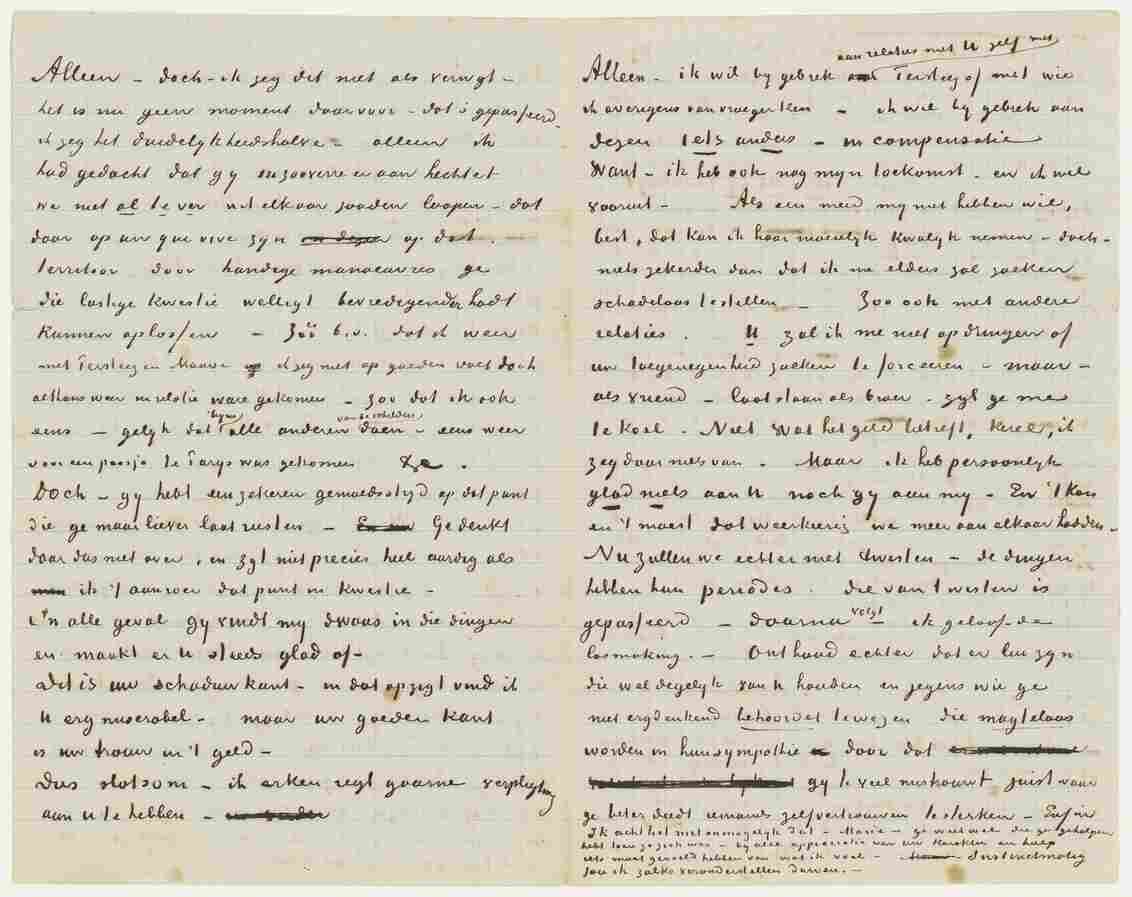 Alleen – doch – ik zeg dit niet als verwyt –
het is nu geen moment daarvoor – dat is gepasseerd –
ik zeg het duidelykheidshalve – alleen ik
had gedacht dat gy er aan hechtet
we niet al te ver uit elkaar zouden loopen – dat
daar op uw qui vive zyn op dat
territoir door handige manoeuvres ge
die lastige kwestie welligt bevredigender hadt
kunnen oplossen – Zóó b.v. dat ik weer
met Tersteeg en Mauve ik zeg niet op goeden voet doch
althans weer in relatie ware gekomen – zoo dat ik ook
eens – gelyk dat byna alle anderen van de schilders doen – eens weer
voor een poosje te Parys was gekomen &c.
Doch – gy hebt een zekeren gemoedsstryd op dat punt
die ge maar liever laat rusten – Ge denkt
daar dus niet over, en zyt niet precies heel aardig als
ik 't aanroer dat punt in kwestie –
in alle geval gy vindt my dwaas in die dingen
en maakt er U steeds glad af –
Dit is uw schaduwkant – in dat opzigt vind ik
U erg miserabel – maar uw goeden kant
is uw trouw in 't geld –
Dus slotsom – ik erken regt gaarne verpligting
aan U te hebben –
aan relaties met U zelf met
Alleen – ik wil by gebrek Tersteeg of met wie
ik overigens van vroeger ken – ik wil by gebrek aan
dezen iets anders – in compensatie
Want – ik heb ook nog myn toekomst – en ik wil
vooruit – Als een meid my niet hebben wil,
best, dat kan ik haar moeielyk kwalyk nemen – doch –
niets zekerder dan dat ik me elders zal zoeken
schadeloos te stellen – Zoo ook met andere
relaties. U zal ik me niet opdringen of
uw toegenegenheid zoeken te forceeren – maar –
als vriend – laat staan als broer – zyt ge me
te koel – Niet wat het geld betreft, kerel, ik
zeg daar niets van – Maar ik heb persoonlyk
glad niets aan U noch gy aan my – En 't kon
en 't moest dat weerkeerig we meer aan elkaar hadden –
Nu zullen we echter niet twisten – de dingen
hebben hun periodes. die van twisten is
gepasseerd – daarna volgt – ik geloof de
losmaking. – Onthoud echter dat er lui zyn
die wel degelyk van U houden en jegens wie ge
niet ergdenkend behoordet te wezen die magteloos
worden in hun sympathie door dat
gy te veel miskount juist waar
ge beter deedt iemands zelfvertrouwen te sterken – Enfin
Ik acht het niet onmogelyk dat – Marie – ge weet wel die ge geholpen
hebt toen ze ziek was – by alle appreciatie van uw karakter en hulp
iets moet gevoeld hebben van wat ik voel – Instinctmatig
zou ik zulks veronderstellen durven. –